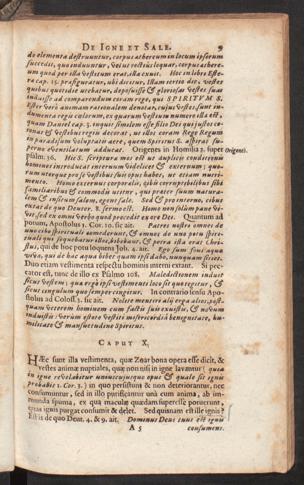 DE IGNE ET SALE. 9
do elementa destruuntur, corpus æthereum in locum ipsorum
succedit, quo induuntur, velut vestis loquar, corpus æthere-
um quod per illa vestitum erat, illa exuit. Hoc in libro Este-
ra cap. 15. præfiguratur, ubi dicitur, Illam tertio die: vestes
quibus quotidie utebatur, deposuisse & gloriosas vestes suas
induisse ad comparendum coram rege, qui SPIRITUM S.
Ester verò animam rationalem denotat, cujus vestes sunt in-
dumenta regis colorum, ex quarum vestium numero illa est,
quam Daniel cap. 7. togati similem esse filio Dei qui justos co-
ronat & vestibus regiis decorat, ut illos coram Rege Regum
in paradisum voluptatis agere, quem Spiritus S. aspirat su-
perno æmulatium adducat. Origenes in Homilia 2. super Origeni.
psalm. 36. Hic S. Scriptura mos est ut duplicis conditionis
homines introducat internum videlicet & externum; quo-
rum uterque pro se vestibus suis opus habet, ut etiam nutri-
mento. Homo externus corporalis, cibis corruptibilibus sibi
familiaribus & commodis utitur, qui præter suum natura-
lem & insitum salem, egent sale. Sed & pro interno, cibus
extat de quo Deuter. 8. sermo est. Homo non solùm pane vi-
vit sed ex omni verbo quod procedit ex ore Dei. Quantum ad
potum, Apostolus 1. Cor. 10. sic ait. Patres nostri omnes de
uno cibo spirituali comederunt, & omnes de uno petu spiri-
tuali quos sequebatur illos, bibebant, & petra ista erat Chri-
stus, qui de hoc potu loquens Joh. 4. ait. Ego sum fons aquæ
vivæ, qui de hac aqua bibet quam ipsi dabo, nunquam sitiet.
Duo etiam vestimenta respectu hominis interni extant. Si pec-
cator est, tunc de illo ex Psalmo 108. Maledictionem induit
sicut vestem; qua ergo ipsi vestimenti loco sit quo tegitur, &
sicut cingulum quo semper cingitur. In contrario sensu Apo-
stolus ad Coloss. 3. sic ait. Nolite mentiri alij erga alios, post-
quam veterem hominem cum factis suis exuistis, & novum
induistis: verùm estote vestiti misericordiâ benignitate, hu-
militate & mansuetudine Spiritus.
CAPUT X.
HÆc sunt illa vestimenta, quæ Zoar bona opera esse dicit, &
vestes animæ nuptiales, quæ non nisi in igne lavantur; quia
in igne revelabitur uniuscujusque opus & quale sit ignis
probabit 1. Cor. 3.) in quo persistunt & non deteriorantur, nec
consumuntur, sed in illo purificantur unà cum anima, ab im-
munda spuma, ex qua maculæ quædam superesse potuerunt,
quas ignis purgat consumit & delet. Sed quisnam est ille ignis?
Est is de quo Deut. 4. & 9. ait. Dominus Deus tuus est ignis
A 5 consumens.